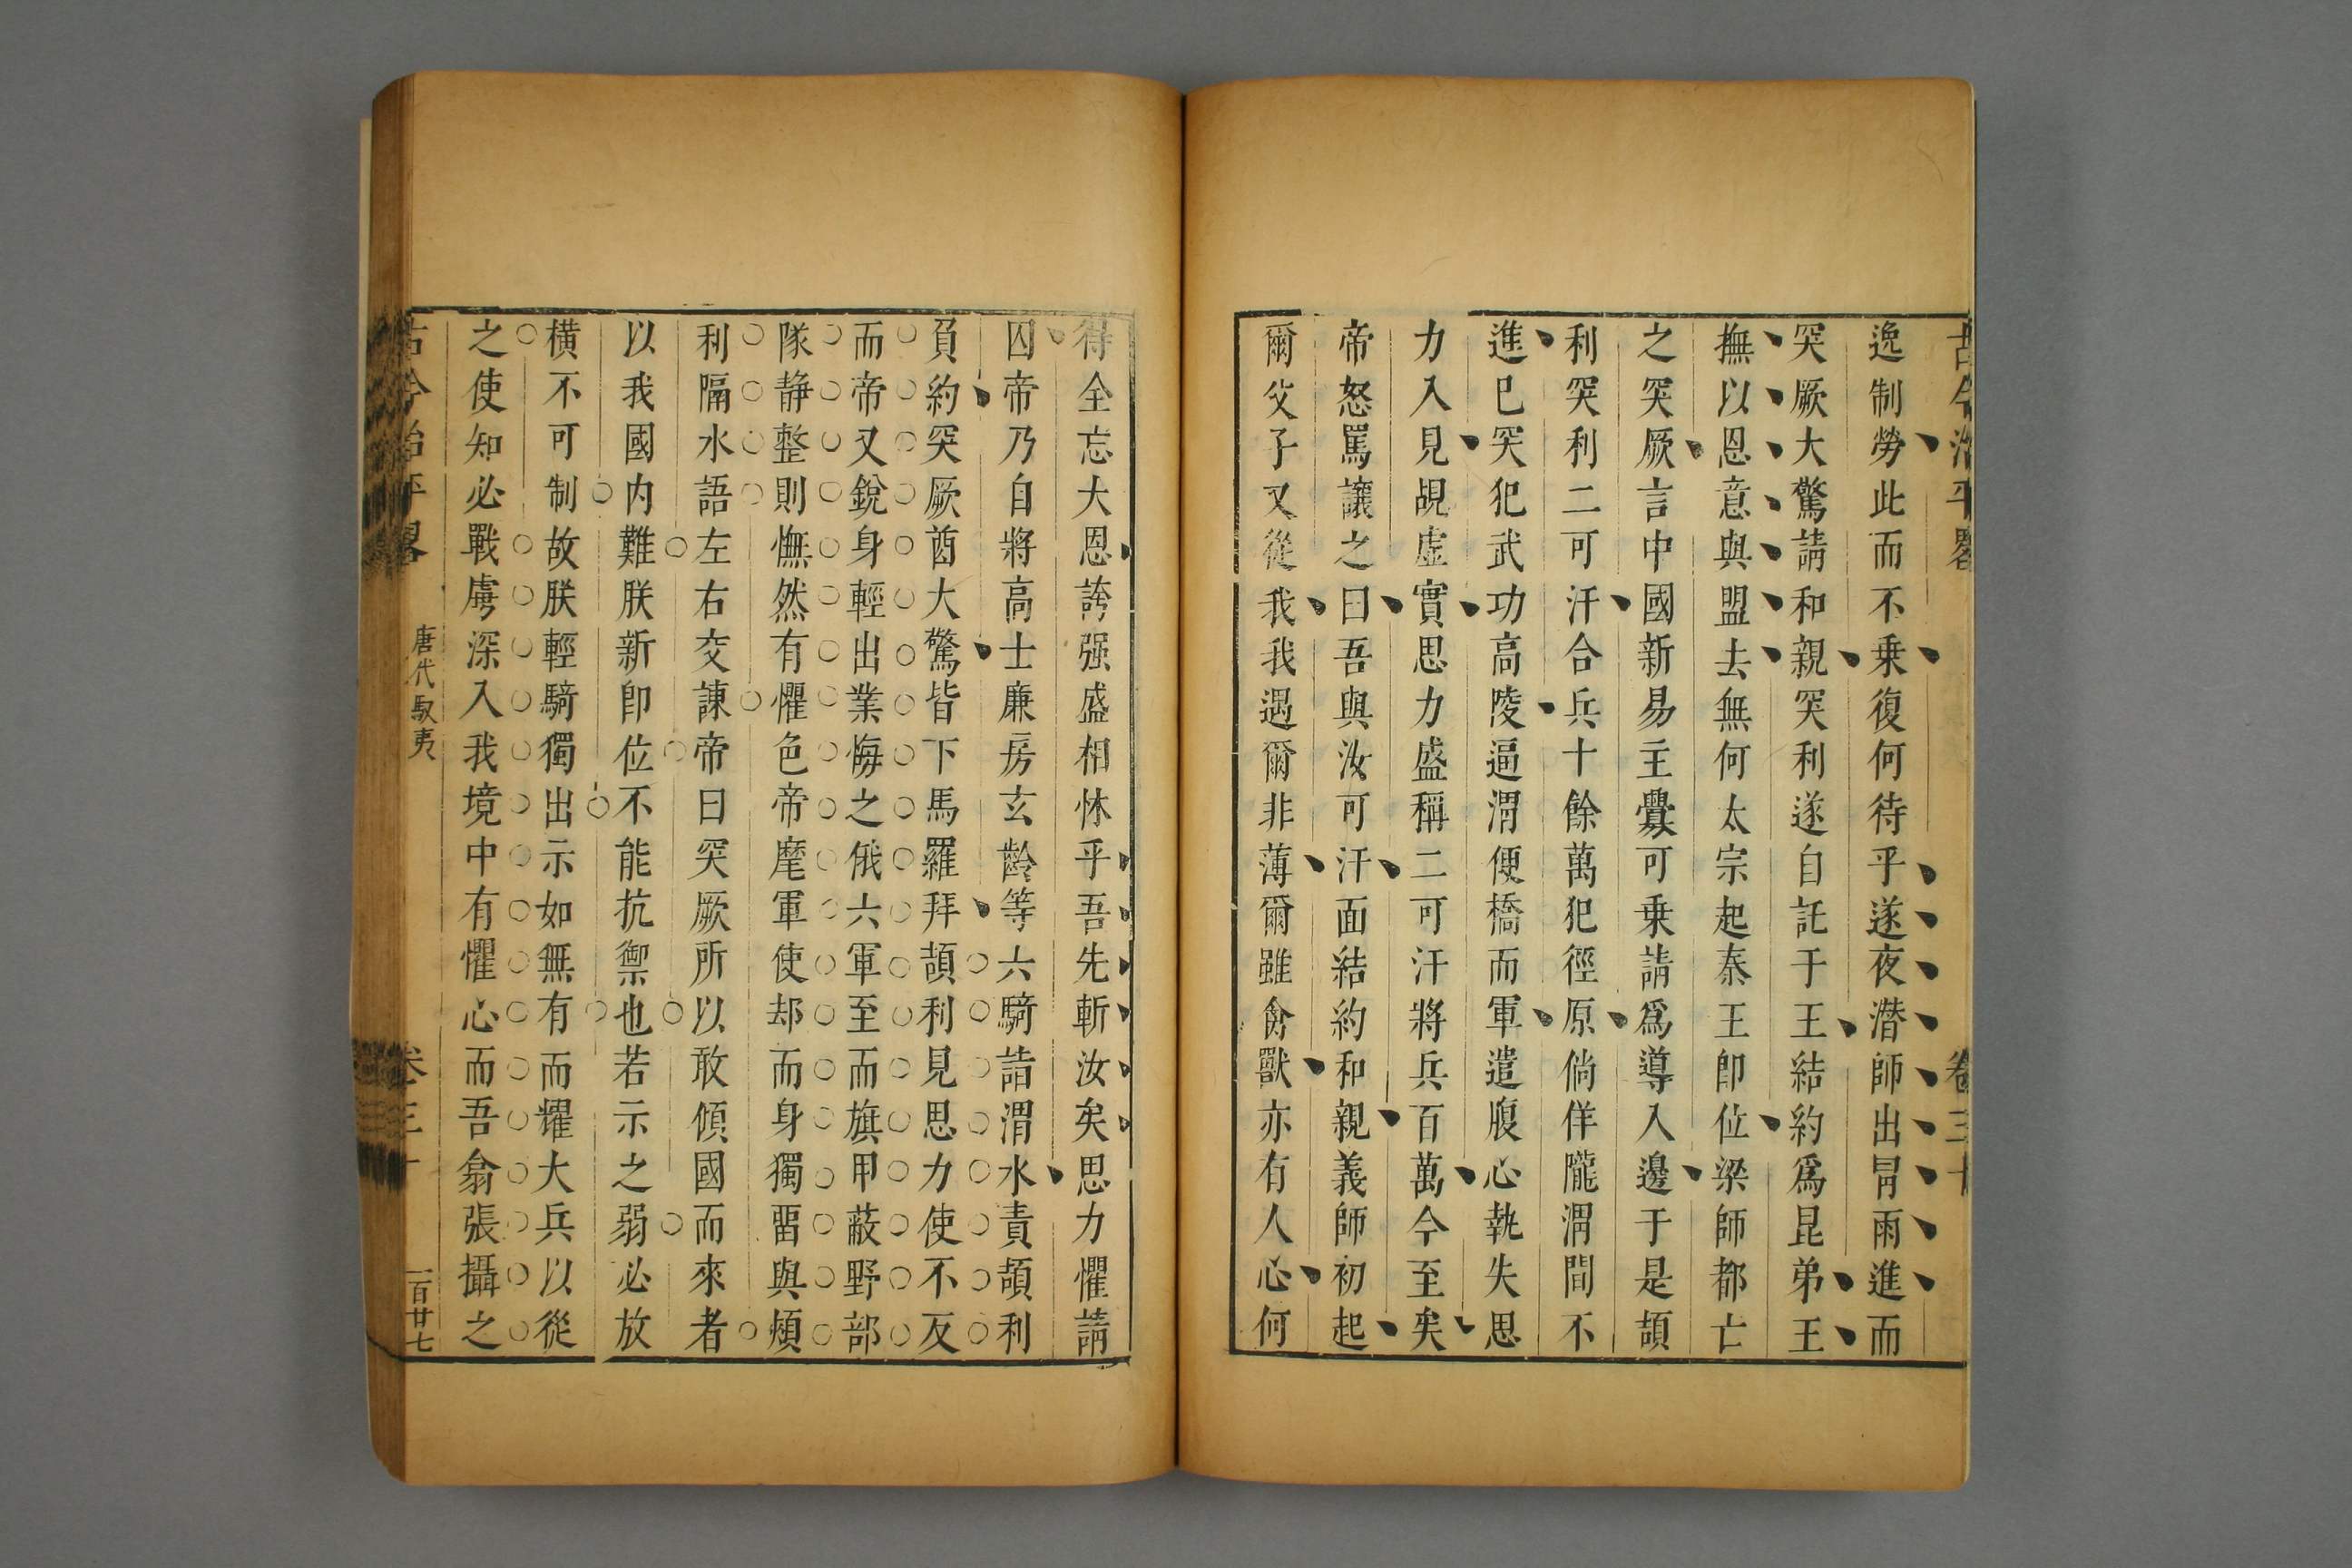 古今治平畧 卷三十
逸制勞此而不乗復何待乎遂夜潛師出冐雨進而
突厥大驚請和親突利遂自託于王結約爲昆弟王
撫以恩意與盟去無何太宗起秦王卽位梁師都亡
之突厥言中國新易主釁可乗請爲導入邊于是頡
利突利二可汗合兵十餘萬犯徑原倘佯隴渭間不
進已突犯武功高陵逼渭便橋而軍遣腹心執失思
力入見覘虛實思力盛稱二可汗將兵百萬今至矣
帝怒罵讓之曰吾與汝可汗面結約和親義師初起
爾父子又從我我遇爾非薄爾雖禽獸亦有人心何
得全忘大恩誇强盛相怵乎吾先斬汝矣思力懼請
囚帝乃自將高士廉房玄齡等六騎詣渭水責頡利
負約突厥酋大驚皆下馬羅拜頡利見思力使不反
而帝又銳身輕出業悔之俄六軍至而旗甲蔽野部
隊静整則憮然有懼色帝麾軍使却而身獨畱與頰
利隔水語左右交諫帝曰突厥所以敢傾國而來者
以我國内難朕新卽位不能抗禦也若示之弱必放
橫不可制故朕輕騎獨出示如無有而耀大兵以從
之使知必戰虜深入我境中有懼心而吾翕張攝之
古今治平畧 唐代馭夷 卷三十 一百廿七